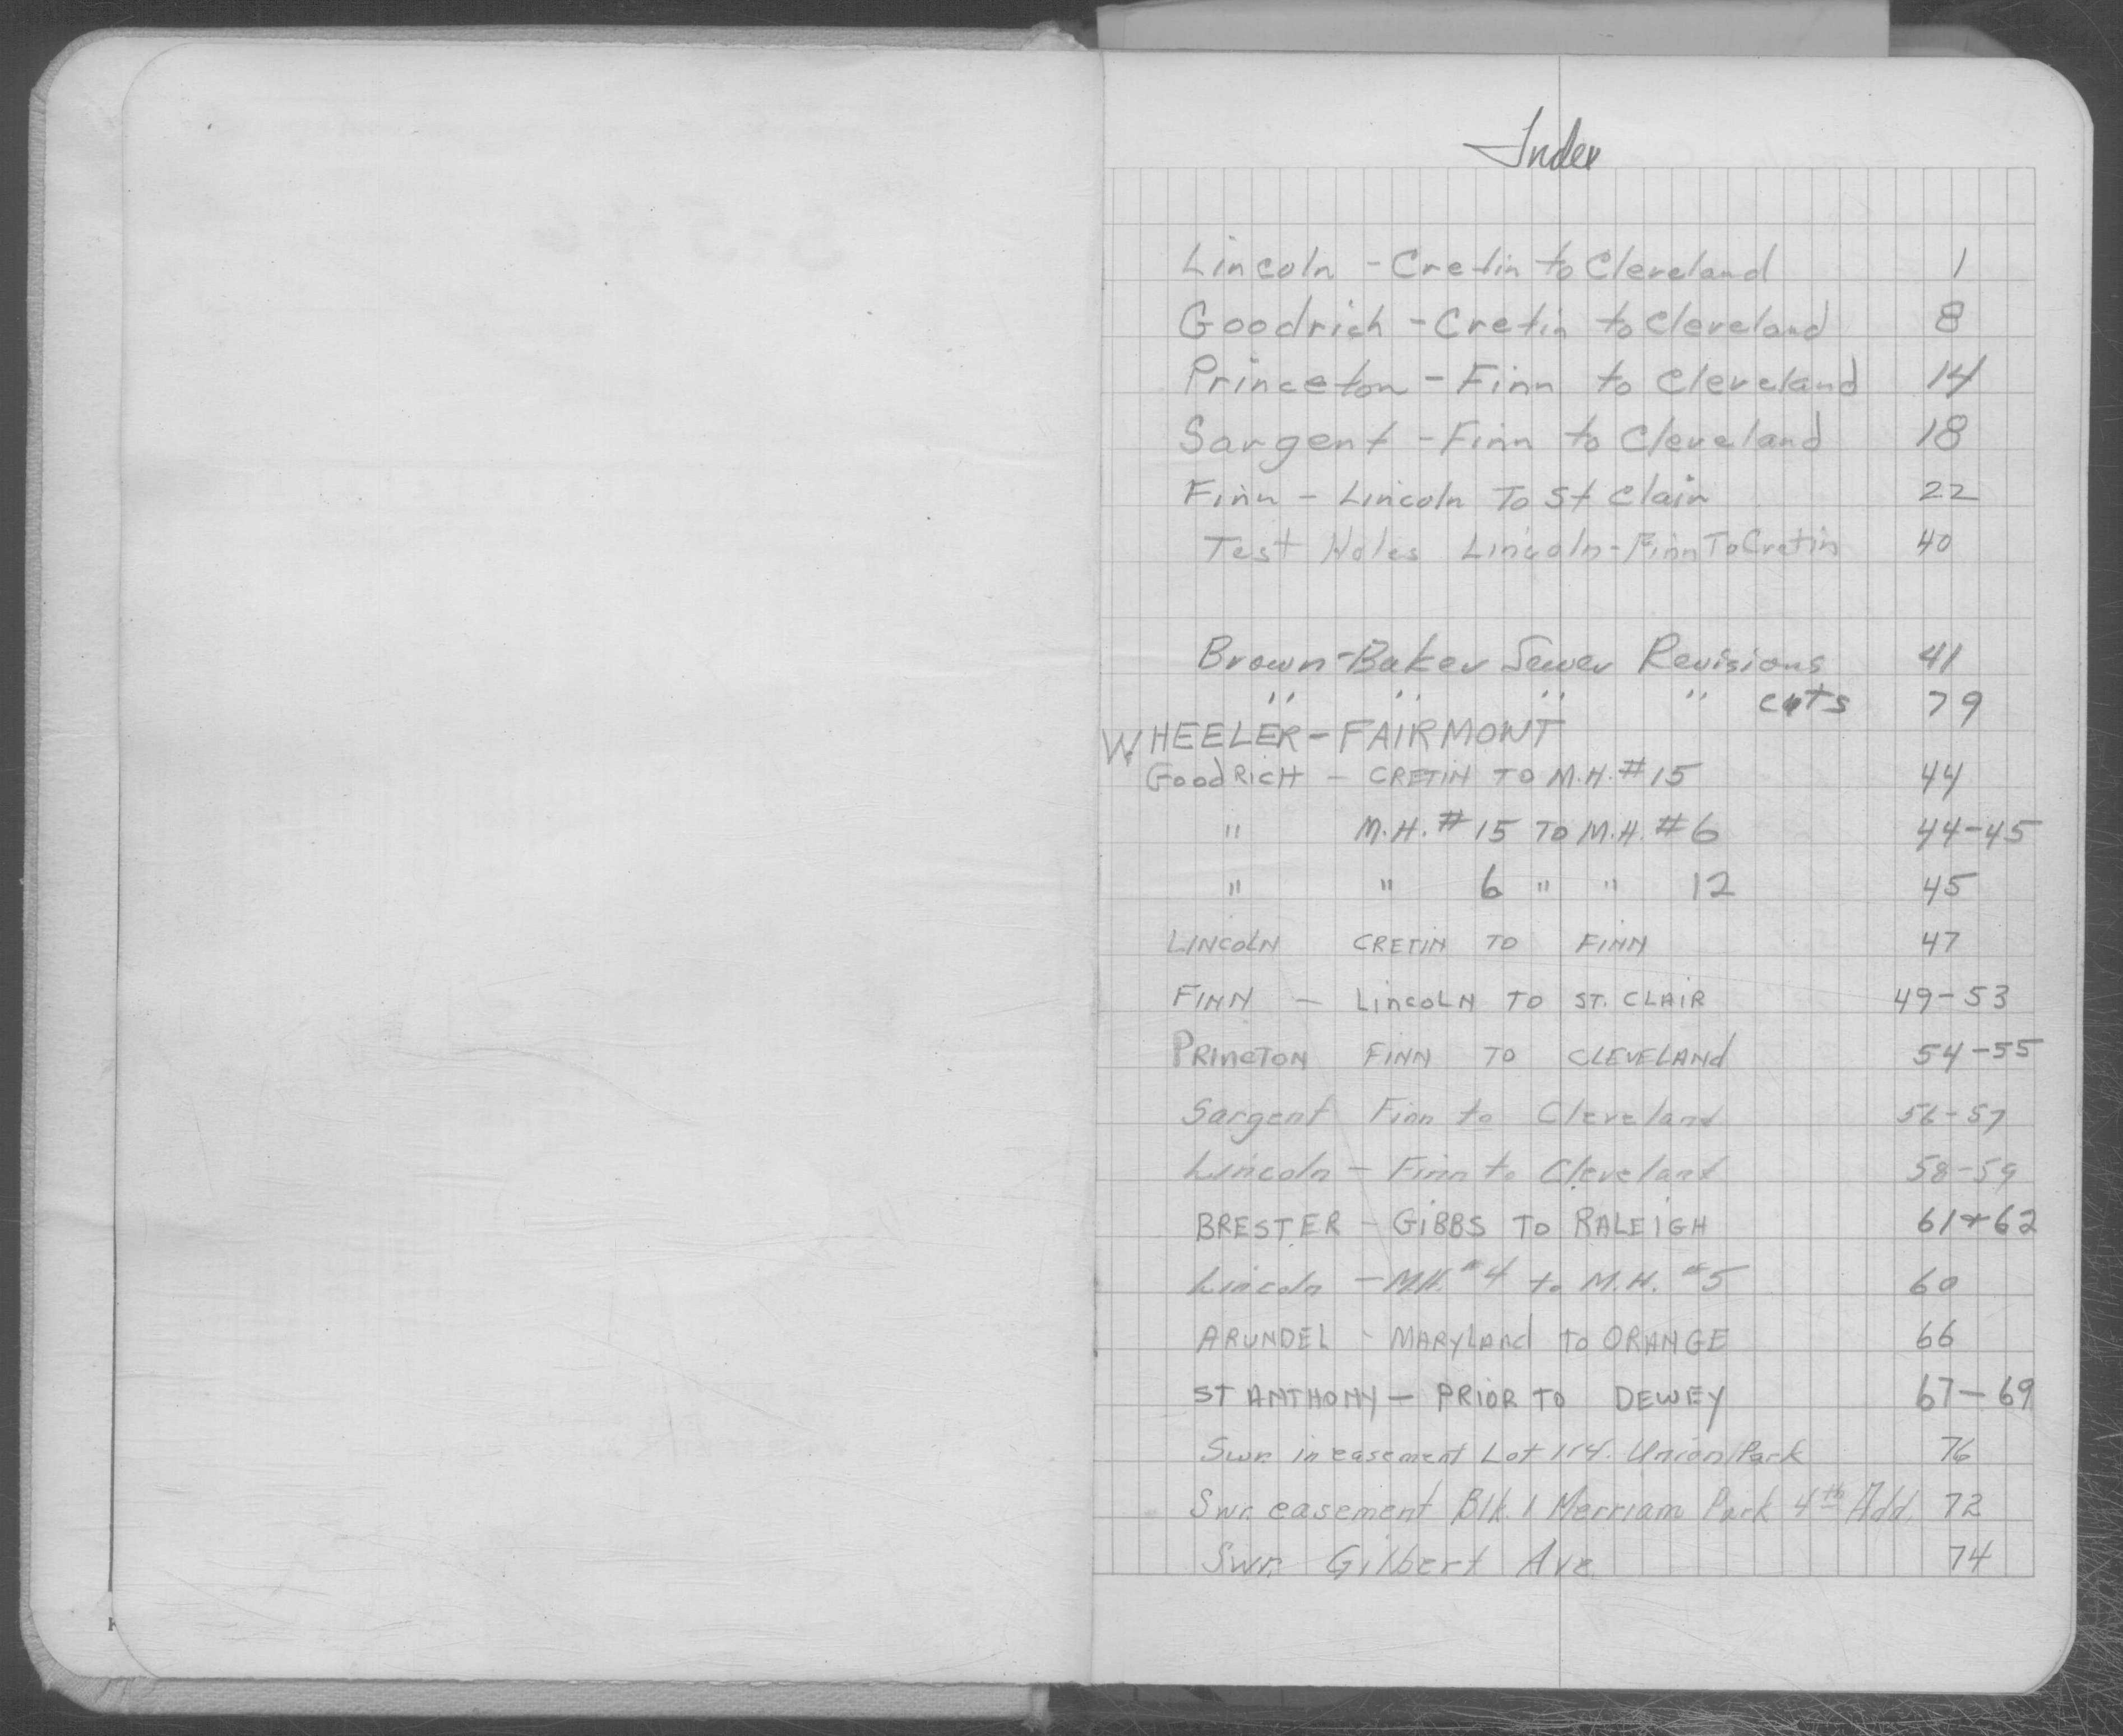 Index
Lincoln - Cretin to Cleveland 1
Goodrich - Cretin to Cleveland 8
Princeton - Finn to Cleveland 14
Sargent - Finn to Cleveland 18
Finn - Lincoln To St Clair 22
Test Holes Lincoln - Finn To Cretin 40
Brown-Baker Sewer Revisions 41
" " " " cuts 79
WHEELER - FAIRMONT
GoodRICH - CRETIN TO M.H. #15 44
" M.H. #15 TO M.H. #6 44-45
" " 6 " " 12 45
LINCOLN CRETIN TO FINN 47
FINN - LINCOLN TO ST. CLAIR 49-53
PRINCTON FINN TO CLEVELANd 54-55
Sargent Finn to Cleveland 56-57
Lincoln - Finn to Cleveland 58-59
BRESTER - GIBBS TO RALEIGH 61+62
Lincoln - M.H. #4 to M.H. #5 60
ARUNDEL - MARYLANd To ORANGE 66
ST ANTHONY - PRIOR TO DEWEY 67-69
Swr. in easement Lot 114. Union Park 76
Swr. easement Blk. 1 Merriam Park 4th Add. 72
Swr. Gilbert Ave. 74